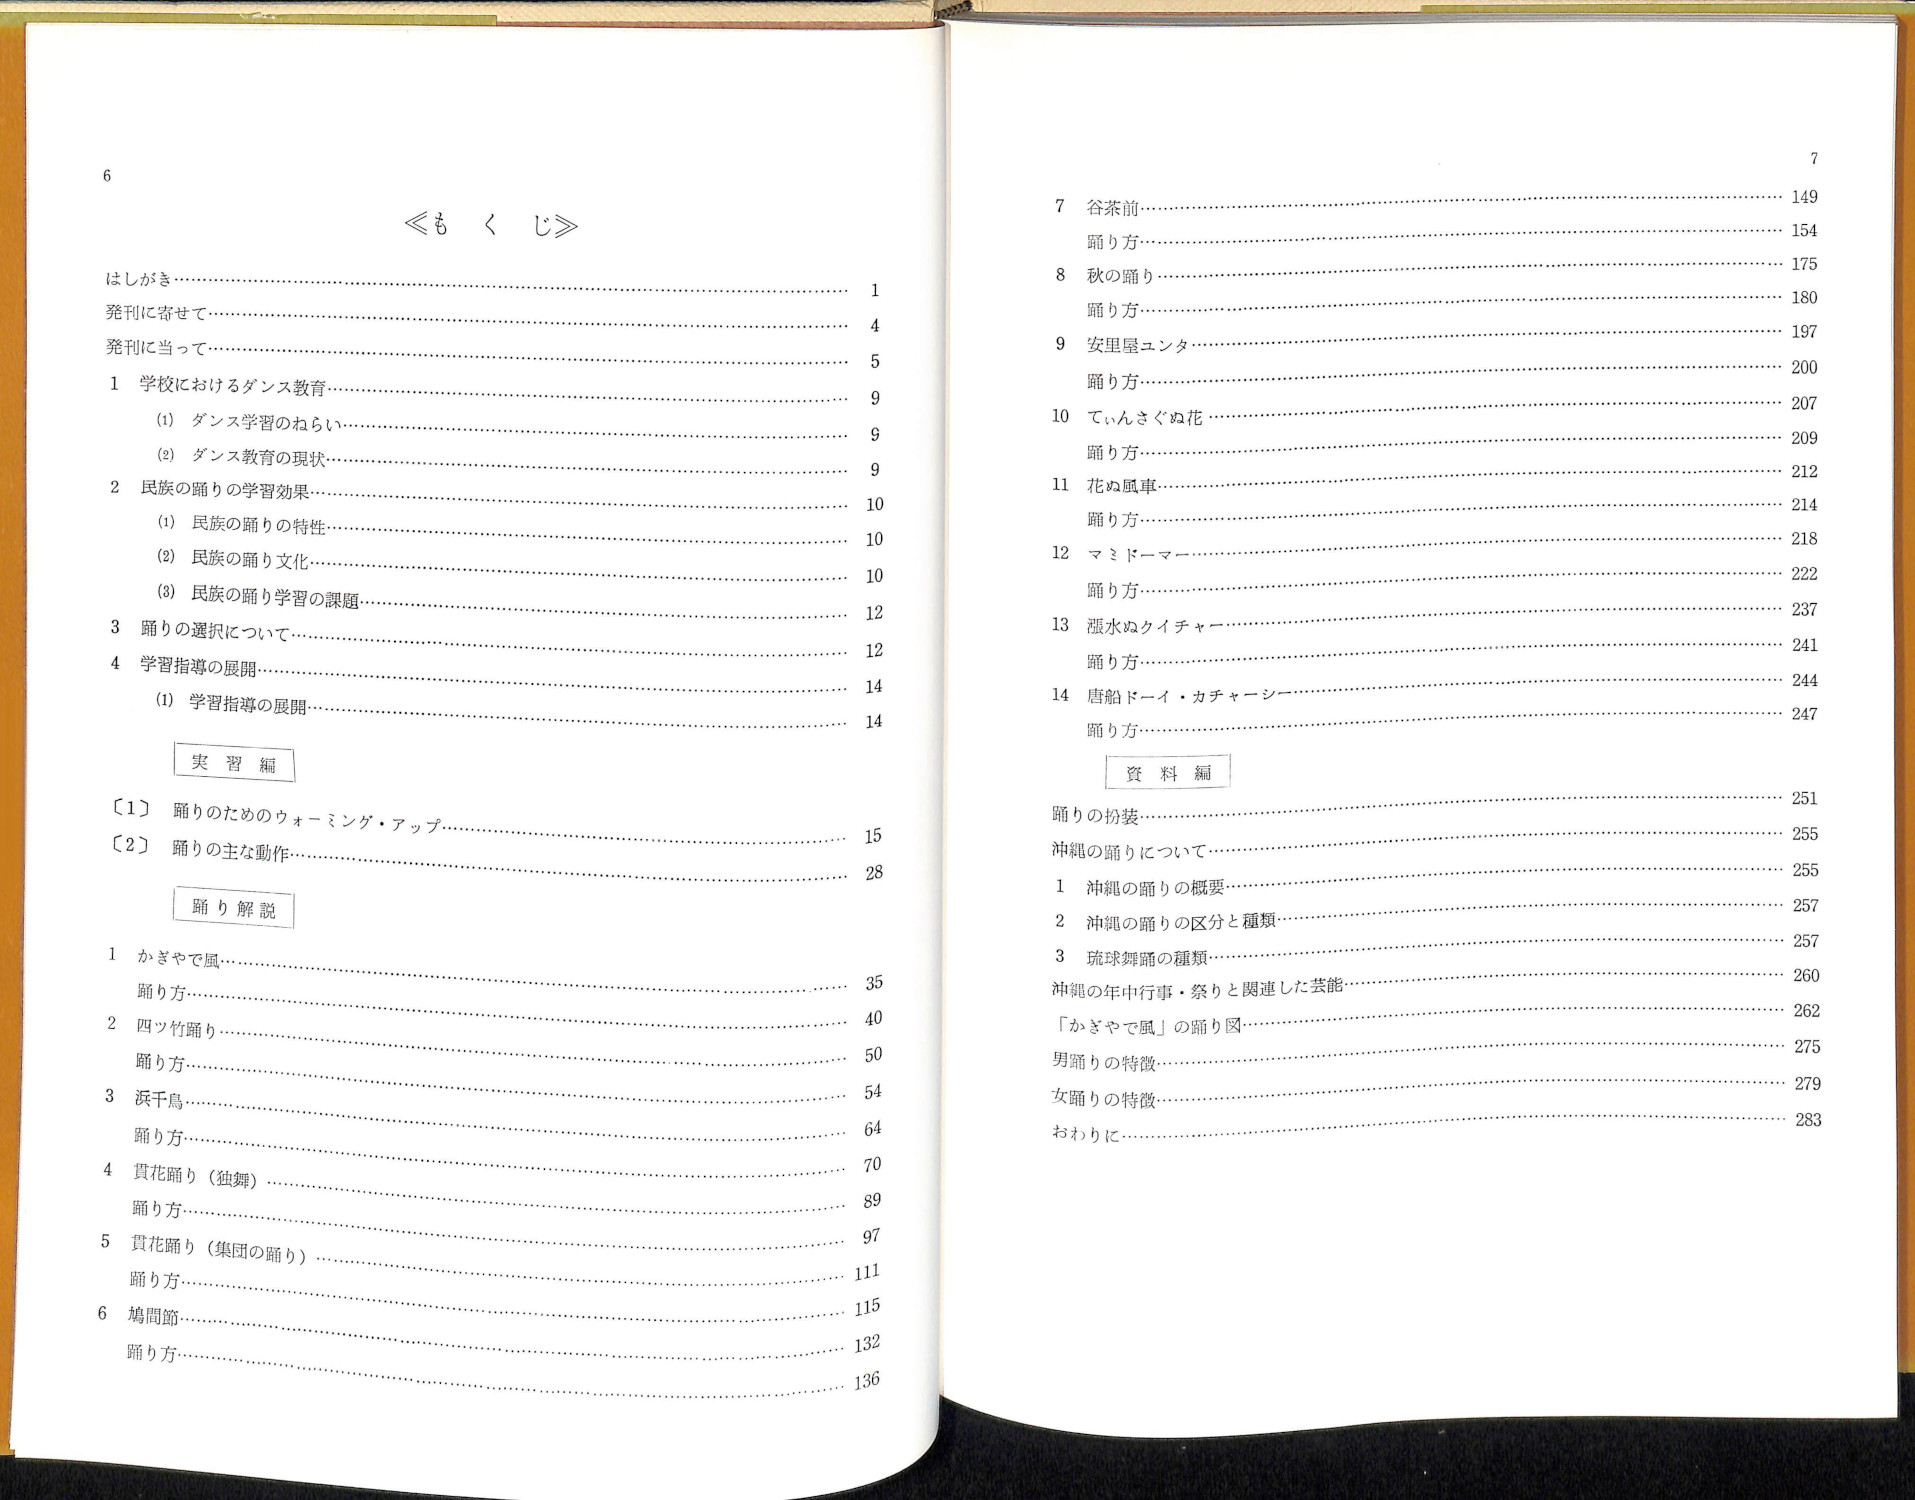 6
≪も く じ≫
はしがき…… 1
発刊に寄せて…… 4
発刊に当って…… 5
1 学校におけるダンス教育…… 9
(1) ダンス学習のねらい…… 9
(2) ダンス教育の現状…… 9
2 民族の踊りの学習効果…… 10
(1) 民族の踊りの特性…… 10
(2) 民族の踊り文化…… 10
(3) 民族の踊り学習の課題…… 12
3 踊りの選択について…… 12
4 学習指導の展開…… 14
(1) 学習指導の展開…… 14
実 習 編
〔1〕 踊りのためのウォーミング・アップ…… 15
〔2〕 踊りの主な動作…… 28
踊り解説
1 かぎやで風…… 35
踊り方…… 40
2 四ツ竹踊り…… 50
踊り方…… 54
3 浜千鳥…… 64
踊り方…… 70
4 貫花踊り（独舞）…… 89
踊り方…… 97
5 貫花踊り（集団の踊り）…… 111
踊り方…… 115
6 鳩間節…… 132
踊り方…… 136
7
7 谷茶前…… 149
踊り方…… 154
8 秋の踊り…… 175
踊り方…… 180
9 安里屋ユンタ…… 197
踊り方…… 200
10 てぃんさぐぬ花…… 207
踊り方…… 209
11 花ぬ風車…… 212
踊り方…… 214
12 マミドーマー…… 218
踊り方…… 222
13 漲水ぬクイチャー…… 237
踊り方…… 241
14 唐船ドーイ・カチャーシー…… 244
踊り方…… 247
資 料 編
踊りの扮装…… 251
沖縄の踊りについて…… 255
1 沖縄の踊りの概要…… 255
2 沖縄の踊りの区分と種類…… 257
3 琉球舞踊の種類…… 257
沖縄の年中行事・祭りと関連した芸能…… 260
「かぎやで風」の踊り図…… 262
男踊りの特徴…… 275
女踊りの特徴…… 279
おわりに…… 283